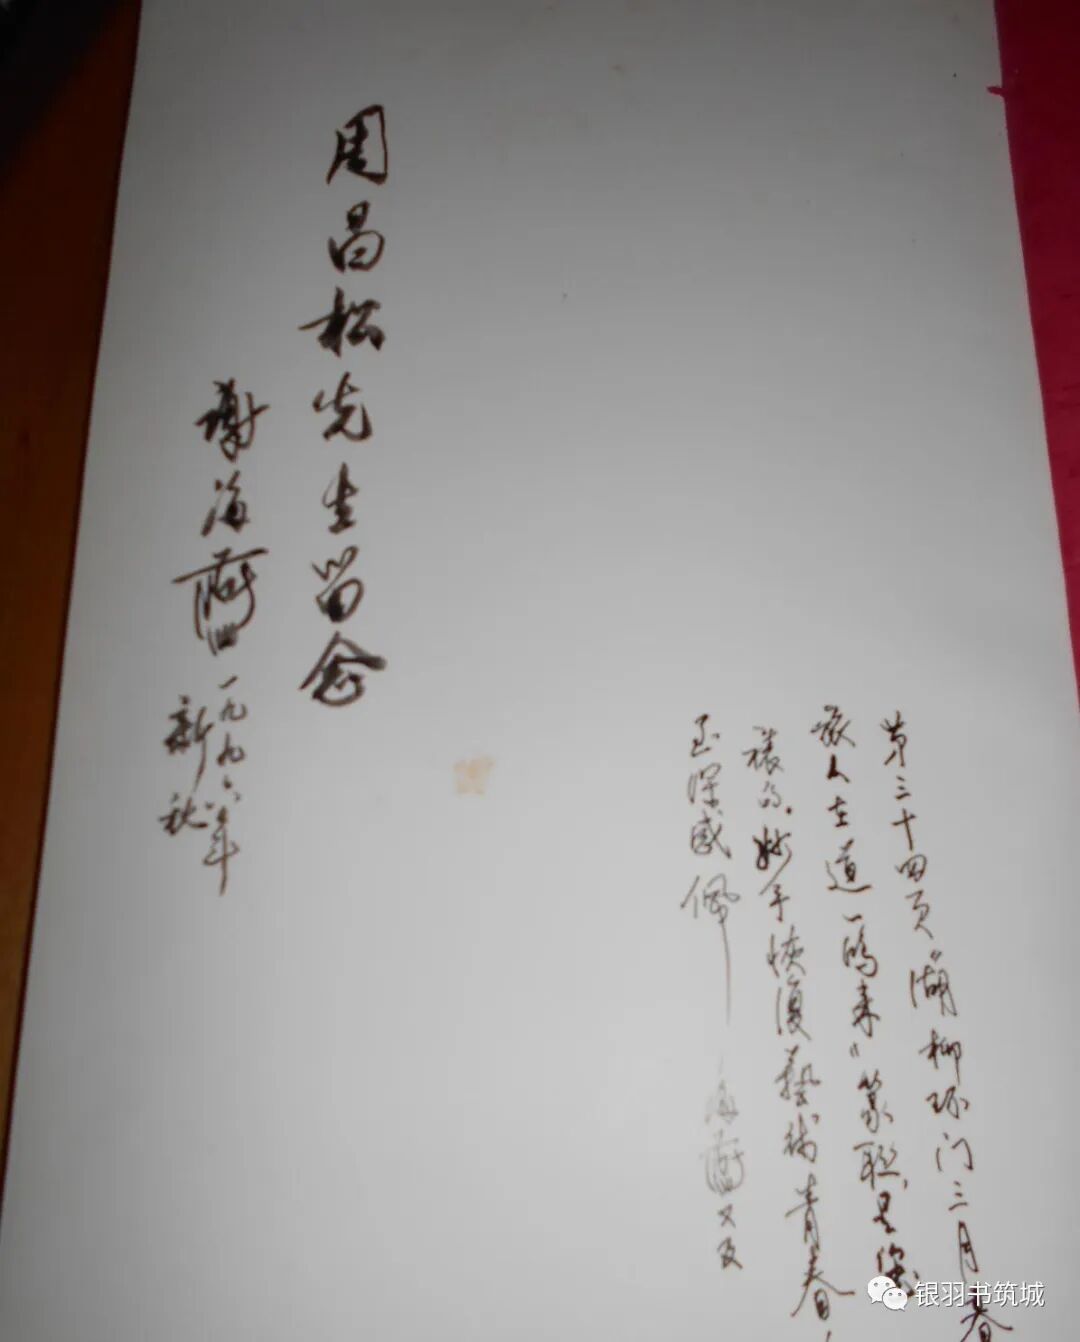 周昌松先生留念
謝海燕 一九九六年
新秋
第三十四页“湖柳环门三月春
故人在道一鸿来”篆联,是您
裱的.妙手恢復藝術青春,
至深感佩
海燕又及
银羽书筑城